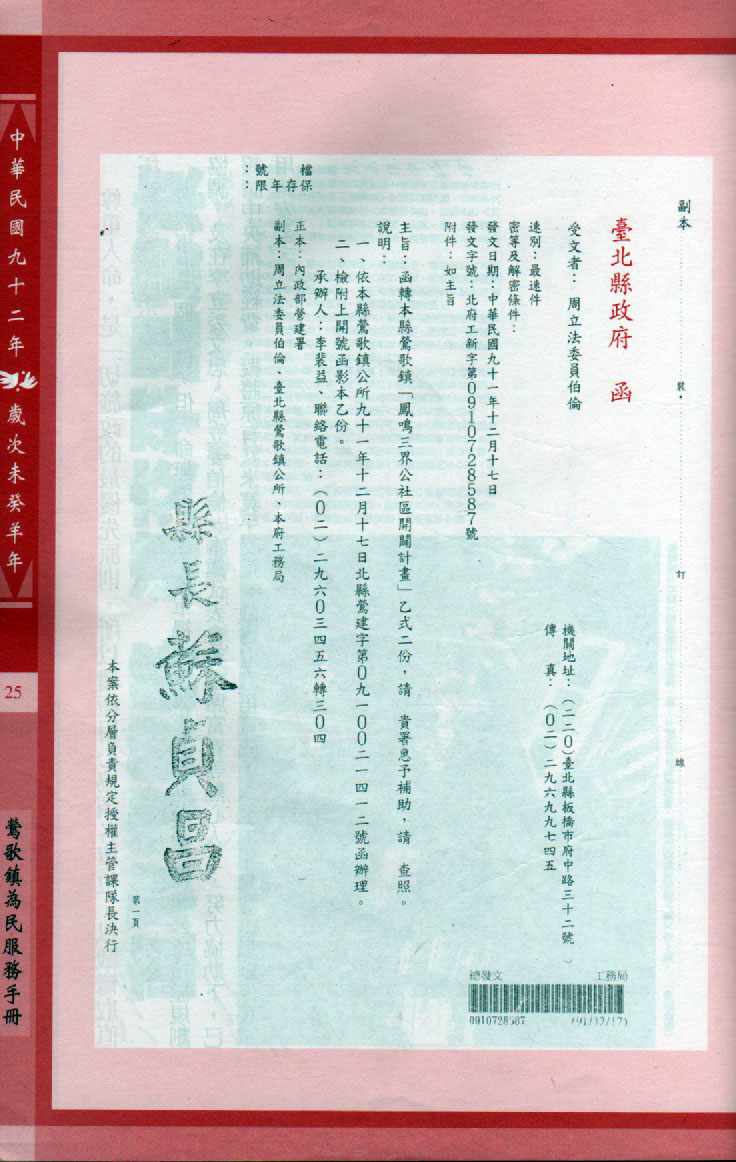 中華民國九十二年 歲次未癸羊年
25
鶯歌鎮為民服務手冊
副本
裝
訂
線
臺北縣政府 函
受文者：周立法委員伯倫
機關地址：（二二０）臺北縣板橋市府中路三十二號
傳 真：（０二）二九六九九七四五
速別：最速件
密等及解密條件：
發文日期：中華民國九十一年十二月十七日
發文字號：北府工新字第0910728587號
附件：如主旨
檔 號：
保存年限：
主旨：函轉本縣鶯歌鎮「鳳鳴三界公社區開闢計畫」乙式二份，請 貴署惠予補助，請 查照。
說明：
一、依本縣鶯歌鎮公所九十一年十二月十七日北縣鶯建字第０九一００二一四一二號函辦理。
二、檢附上開號函影本乙份。
承辦人：李裴益、聯絡電話：（０二）二九六０三四五六轉三０四
正本：內政部營建署
副本：周立法委員伯倫、臺北縣鶯歌鎮公所、本府工務局
縣長蘇貞昌
第一頁
本案依分層負責規定授權主管課隊長決行
總發文 工務局
0910728587 (91/12/17)